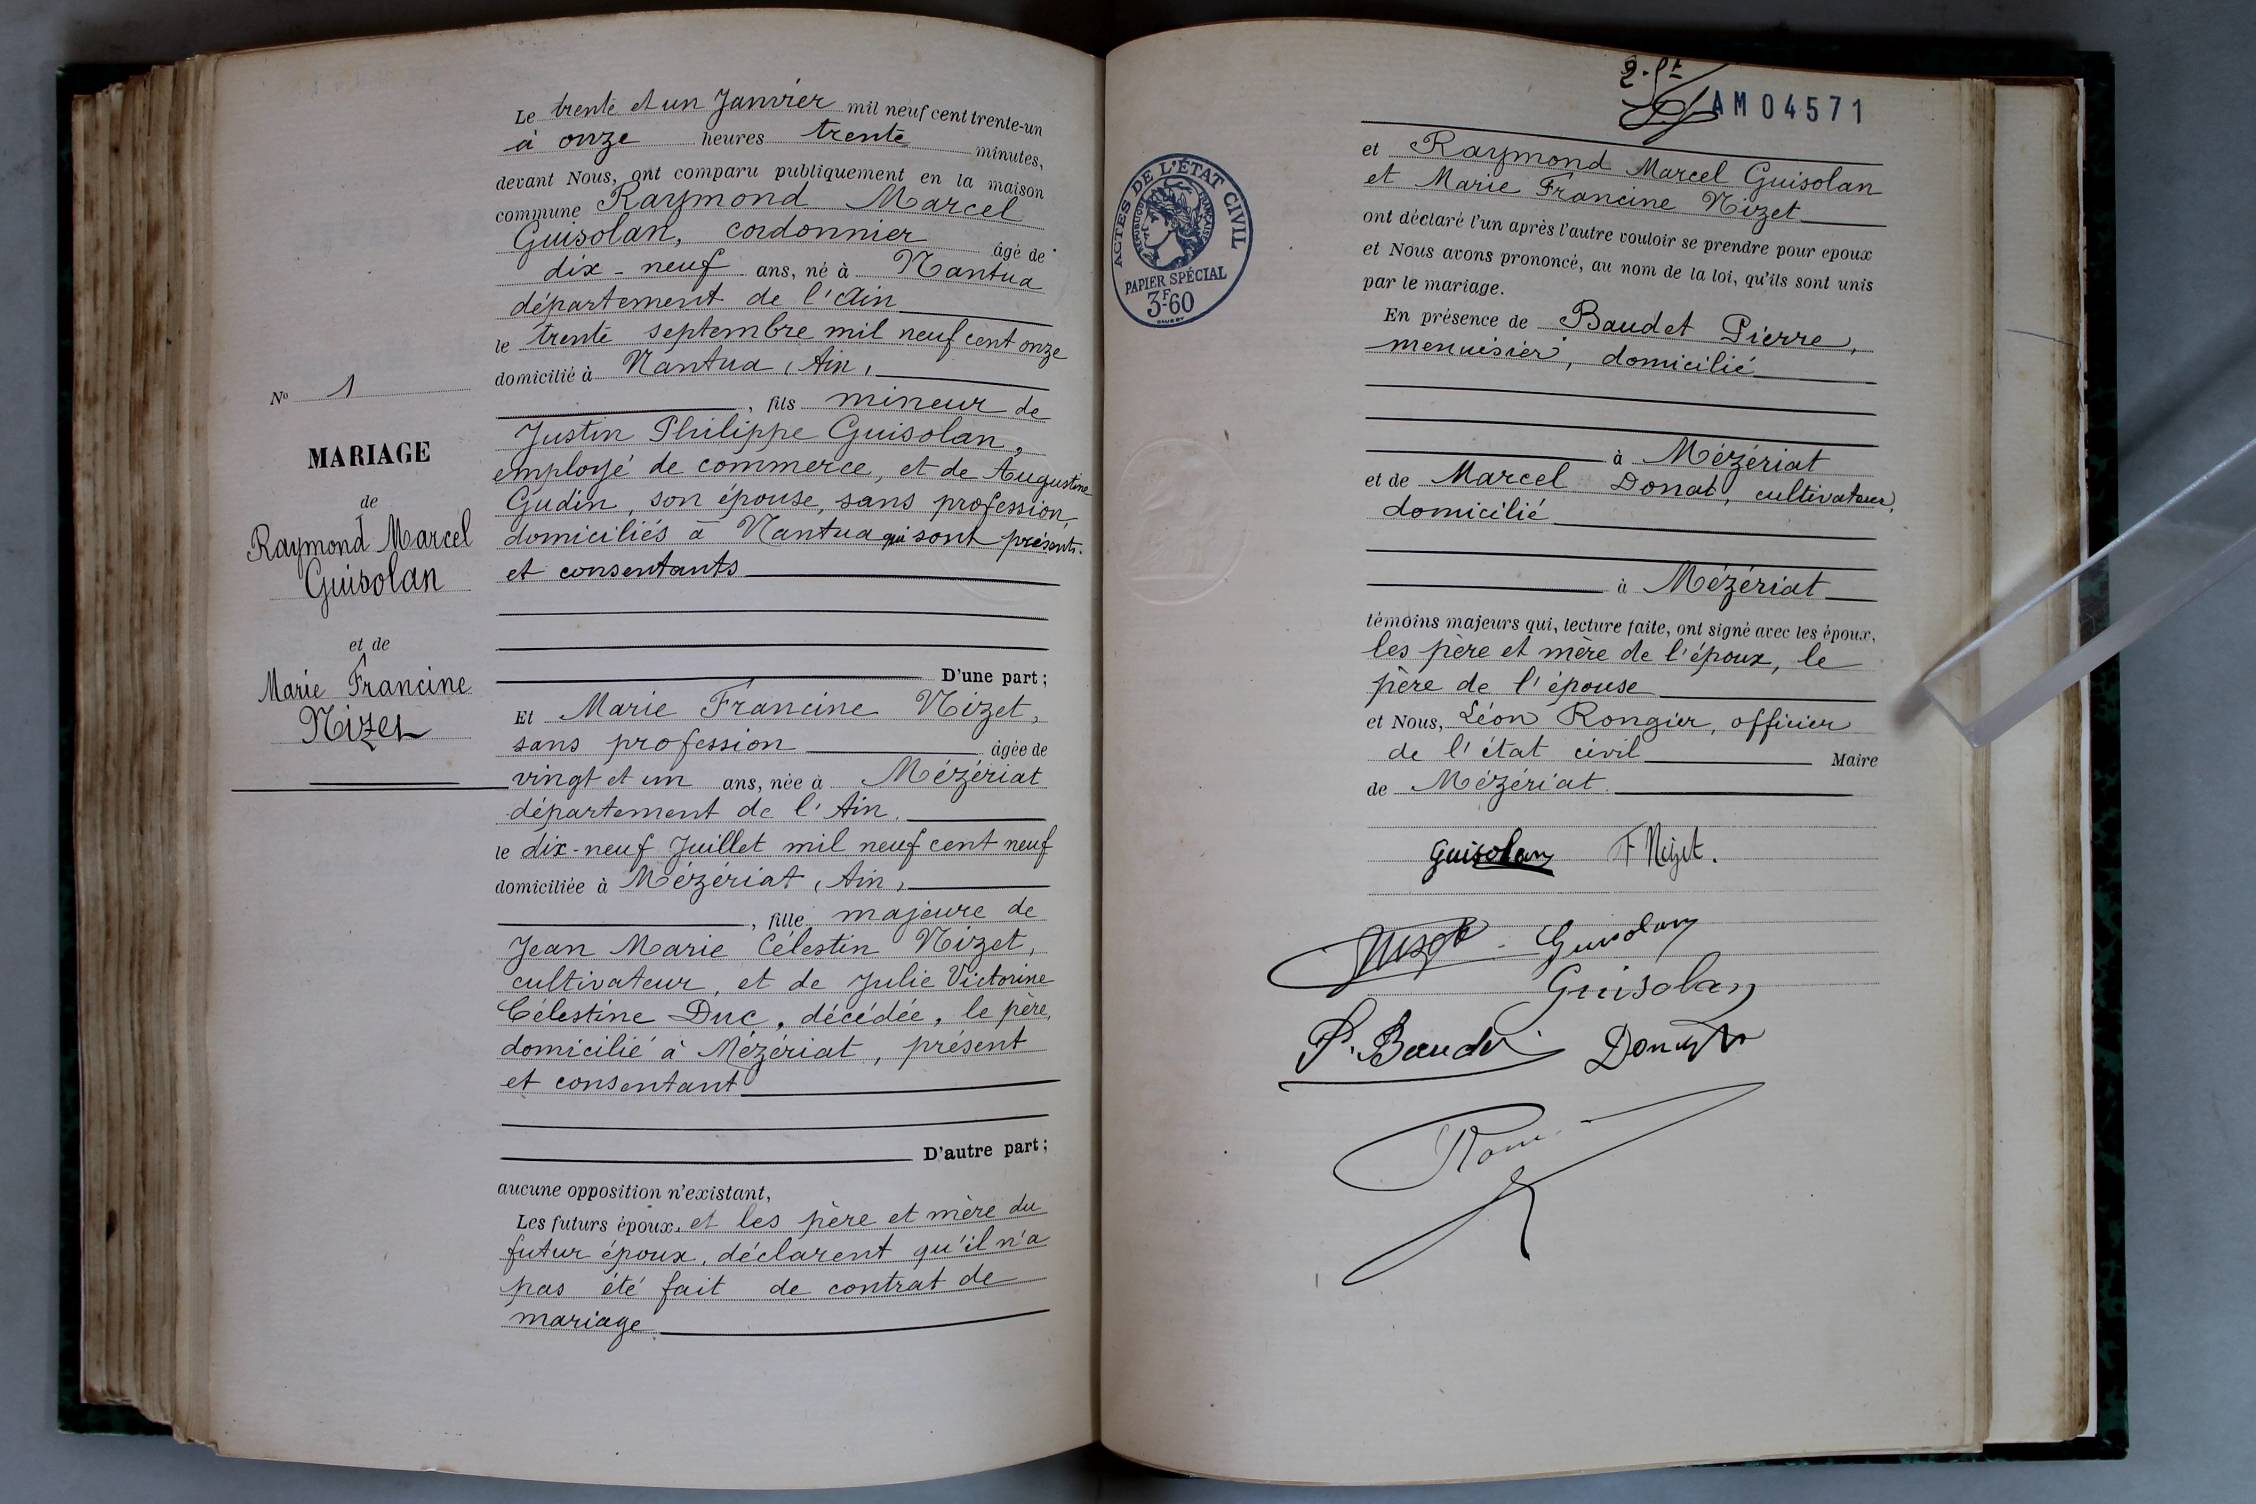 Le trente et un Janvier mil neuf cent trente-un
à onze heures trente minutes,
devant Nous, ont comparu publiquement en la maison
commune Raymond Marcel
Guisolan, cordonnier âgé de
dix-neuf ans, né à Nantua
département de l'Ain
le trente septembre mil neuf cent onze
domicilié à Nantua, Ain,
, fils mineur de
Justin Philippe Guisolan,
employé de commerce, et de Augustine
Gudin, son épouse, sans profession,
domiciliés à Nantua qui sont présents
et consentants
D'une part ;
Et Marie Francine Nizet,
sans profession âgée de
vingt et un ans, née à Mézériat
département de l'Ain.
le dix-neuf Juillet mil neuf cent neuf
domiciliée à Mézériat, Ain,
, fille majeure de
Jean Marie Célestin Nizet,
cultivateur, et de Julie Victorine
Célestine Duc, décédée, le père,
domicilié à Mézériat, présent
et consentant
D'autre part ;
aucune opposition n'existant,
Les futurs époux, et les père et mère du
futur époux, déclarent qu'il n'a
pas été fait de contrat de
mariage.
No 1
MARIAGE
de
Raymond Marcel
Guisolan
et de
Marie Francine
Nizet
AM04571
ACTES DE L'ÉTAT CIVIL
RÉPUBLIQUE FRANÇAISE
PAPIER SPÉCIAL
3F60
et Raymond Marcel Guisolan
et Marie Francine Nizet
ont déclaré l'un après l'autre vouloir se prendre pour epoux
et Nous avons prononcé, au nom de la loi, qu'ils sont unis
par le mariage.
En présence de Baudet Pierre,
menuisier, domicilié
à Mézériat
et de Marcel Donat, cultivateur,
domicilié
à Mézériat
témoins majeurs qui, lecture faite, ont signé avec les époux,
les père et mère de l'époux, le
père de l'épouse
et Nous, Léon Rongier, officier
de l'état civil Maire
de Mézériat.
Guisolan F Nizet.
Guisolan
Guisolan
P. Baudet Donat